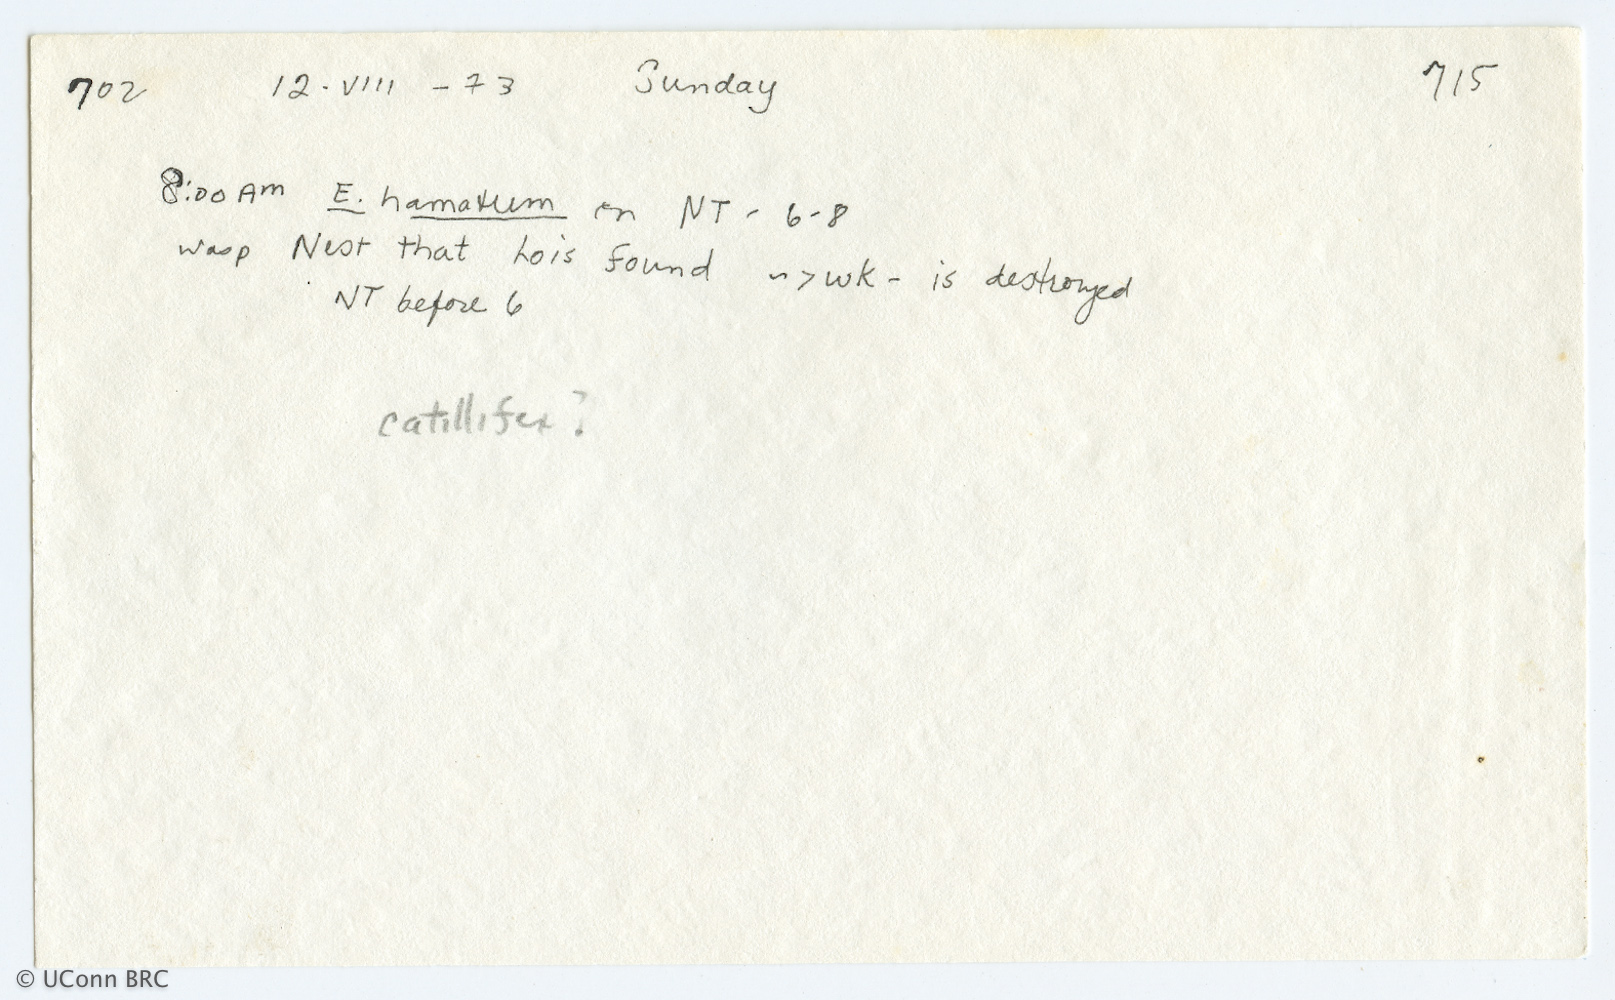 702 12-VIII-73 Sunday 715
8:00 AM E. hamatum on NT - 6-8
wasp Nest that Lois found ~>wk - is destroyed
NT before 6
catillifex?
© UConn BRC